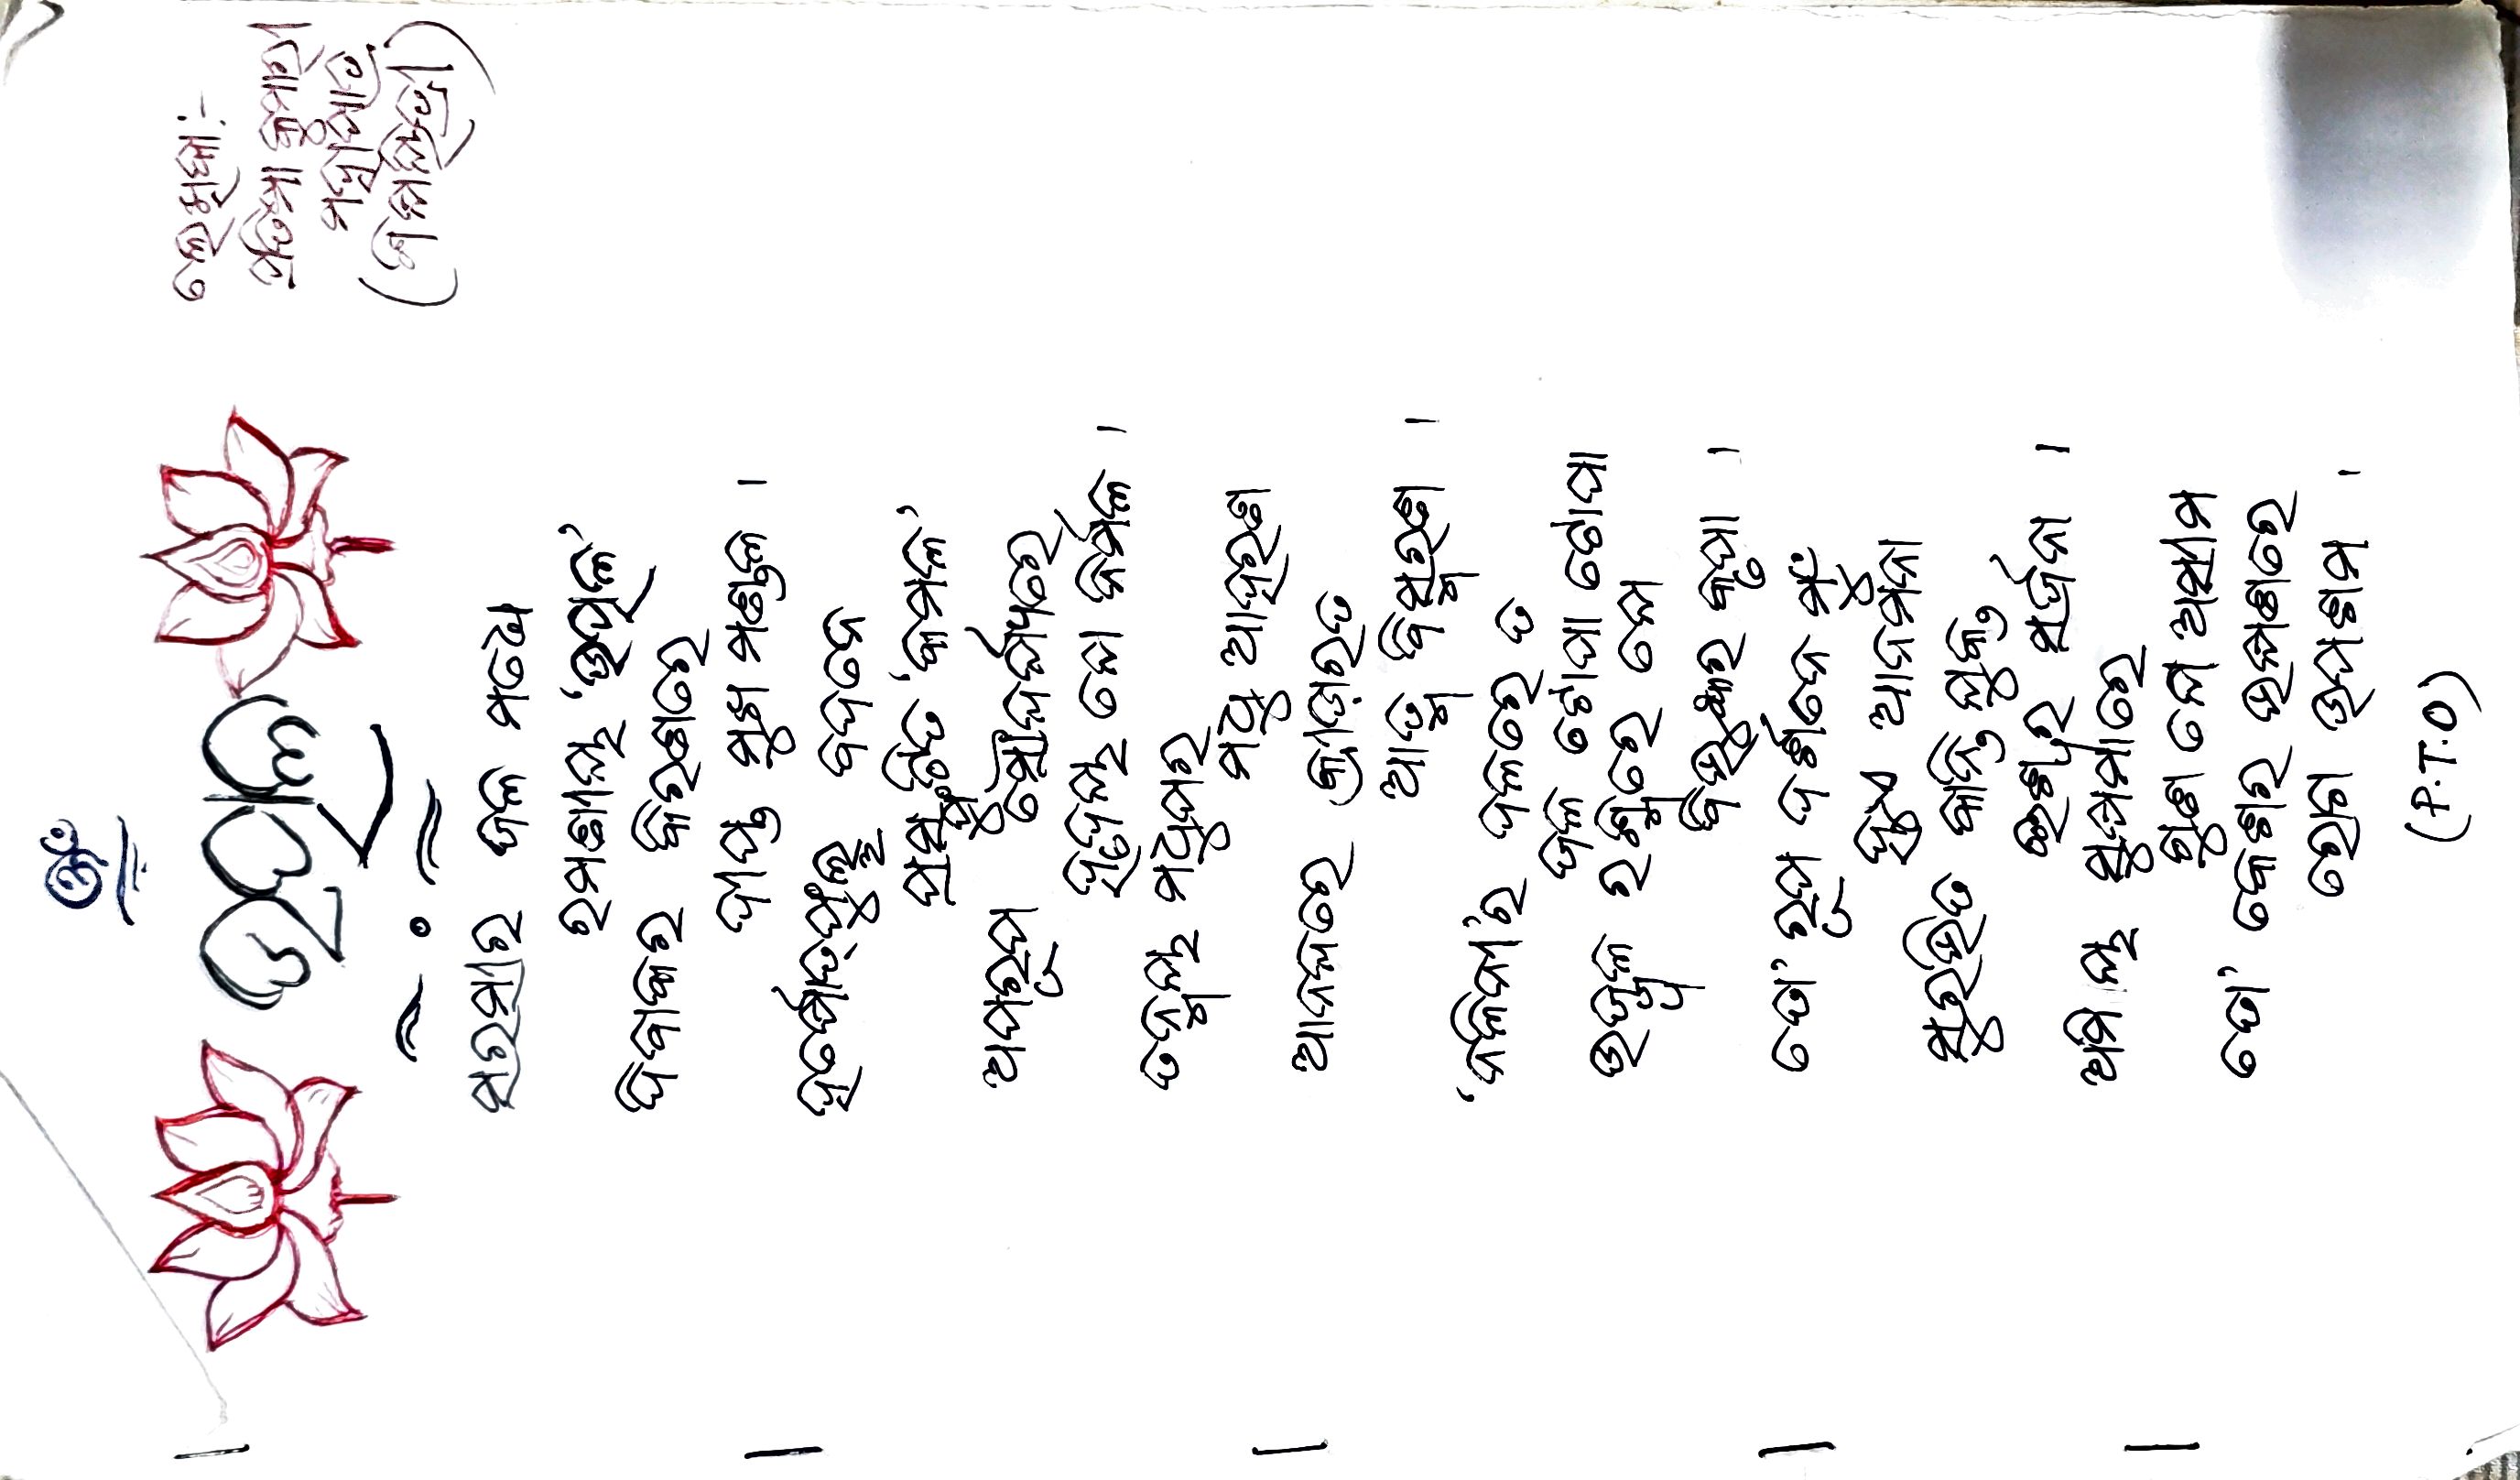 ଓଁ
ଉତ୍ପଳ
ଲେଖିକା:-
ପ୍ରତିମା କୁମାରୀ
ମହାପାତ୍ର
ସରସୀର ଜଳ ମଧ୍ୟେ
ରମଣୀୟ ‘ଉତ୍ପଳ’
ଦିବାକର କିରଣରେ
ଦୀପ୍ତ ମୁଖ ମଣ୍ଡଳ ।
ହର୍ଷୋତ୍‌ଫୁଲ୍ଲ ବଦନେ
ପ୍ରସ୍ଫୁଟିତ ‘କମଳ’
ଅପରୂପ ସୌନ୍ଦର୍ଯ୍ୟରେ
ହୃଦୟ ଲୋ ନିର୍ମଳ ।
ତନ୍ମୟ ମଧୁପର
ମଧୁ ଆହରଣ
ଆନନ୍ଦରେ କ୍ରୀଡ଼ାରତ
ଆତ୍ମ ବିସ୍ମରଣ ।
‘ନଳିନୀ’ର ଦଳରେ ତ
ଜଳ ଟୋପା ଟୋପା
ଉଜ୍ଜ୍ୱଳ ରଶ୍ମିରେ ଲୋ
ବିଭୁଙ୍କର କୃପା ।
ତୋ’ ରୂପ ଦର୍ଶନେ ମୁଁ
ହୁଏ ଆନମନା
ସୁରଭିତ କାନ୍ତି ଯୁକ୍ତ
ଈଶ୍ୱର ସର୍ଜନା ।
ଅମିୟ ସୁଷମାରେ
ଗୁଣ ଲୋ ଅସୀମ
ତୋ’ କେଶର ଭକ୍ଷଣରେ
ରୋଗ ଉପଶମ ।
(P.T.O)